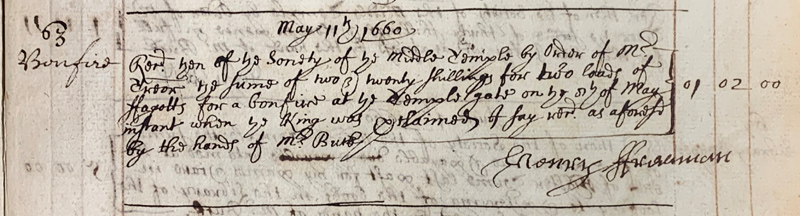 May 11th 1660
63
Bonfire
Recd then of the Sociely of the Middle Temple by Order of Mr
Trevor the summe of two & twenty shillings for two loads of
ffagotts for a bonfire at the Temple gate on the 8th of May
instant when the King was proclaimed I say recd. as aforesd
by the hands of Mr Butle
01 02 00
Henry ffreeman